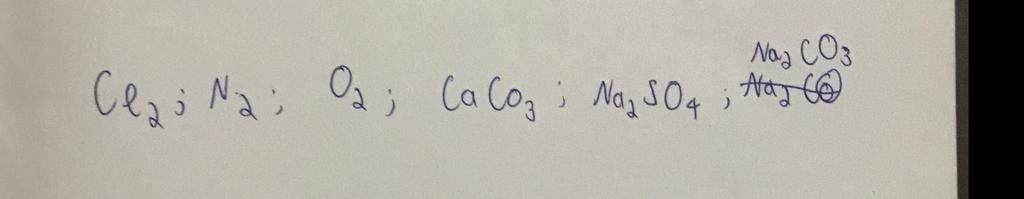 Cl₂; N₂; O₂; CaCo₃; Na₂SO₄; Na₂CO₃